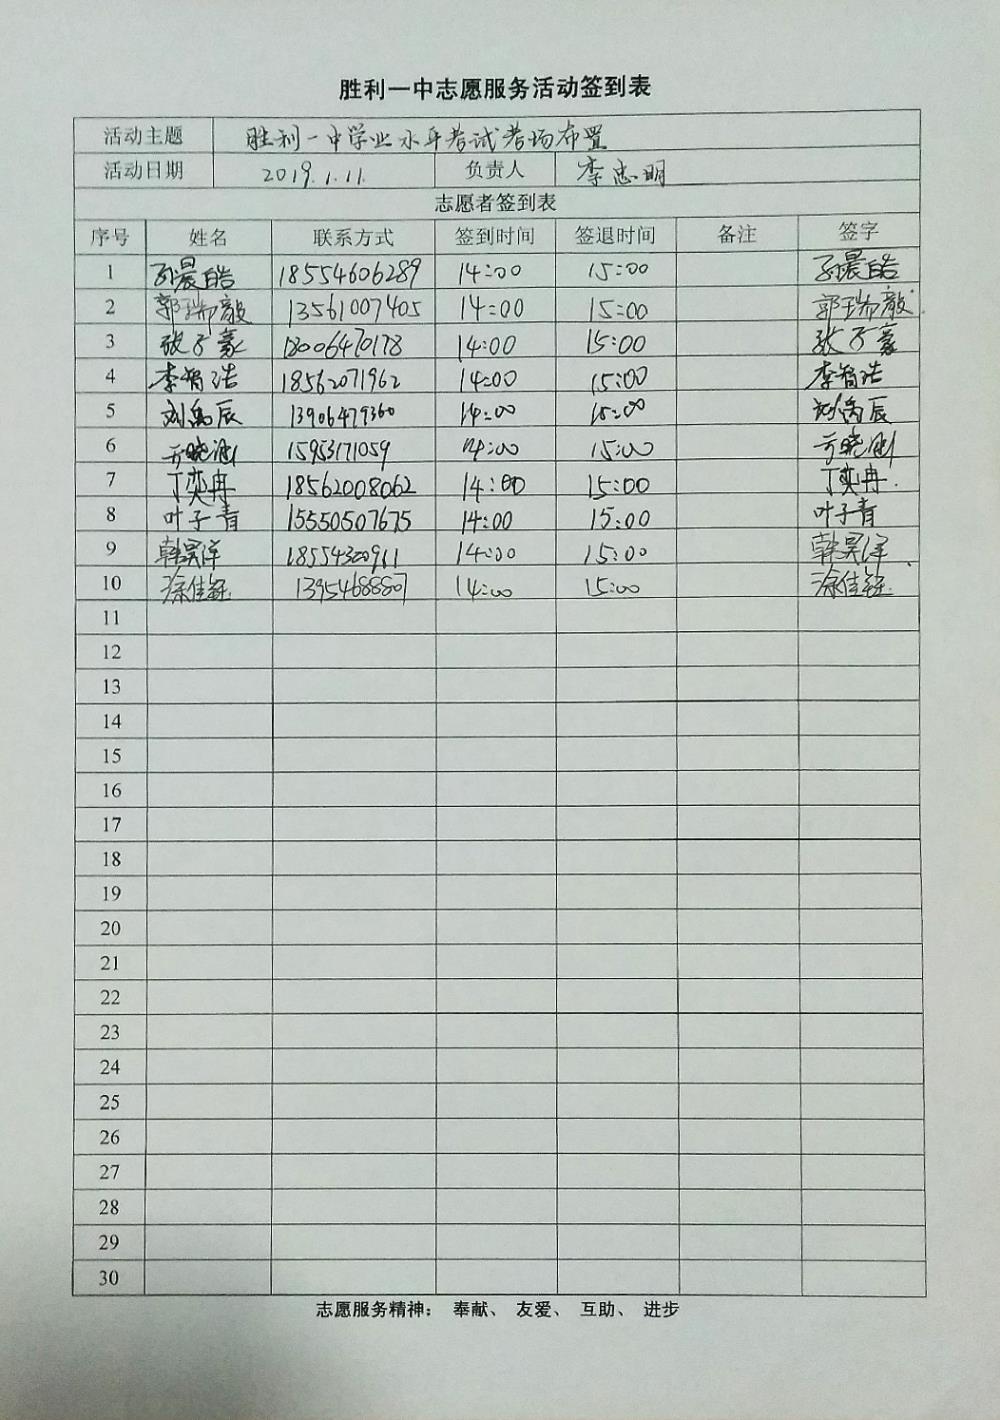 胜利一中志愿服务活动签到表
活动主题 胜利一中学业水平考试考场布置
活动日期 2019.1.11. 负责人 李忠明
志愿者签到表
序号 姓名 联系方式 签到时间 签退时间 备注 签字
1 孙晨皓 18554606289 14:00 15:00 孙晨皓
2 郭瑞毅 13561007405 14:00 15:00 郭瑞毅
3 张子豪 18006470178 14:00 15:00 张子豪
4 李智浩 18562071962 14:00 15:00 李智浩
5 刘禹辰 13906479360 14:00 15:00 刘禹辰
6 15953171059 14:00 15:00
7 丁奕冉 18562008062 14:00 15:00 丁奕冉.
8 叶子青 15550507675 14:00 15:00 叶子青
9 韩昊洋 18554320911 14:00 15:00 韩昊洋
10 涂佳钰 13954688807 14:00 15:00 涂佳钰
11
12
13
14
15
16
17
18
19
20
21
22
23
24
25
26
27
28
29
30
志愿服务精神： 奉献、 友爱、 互助、 进步